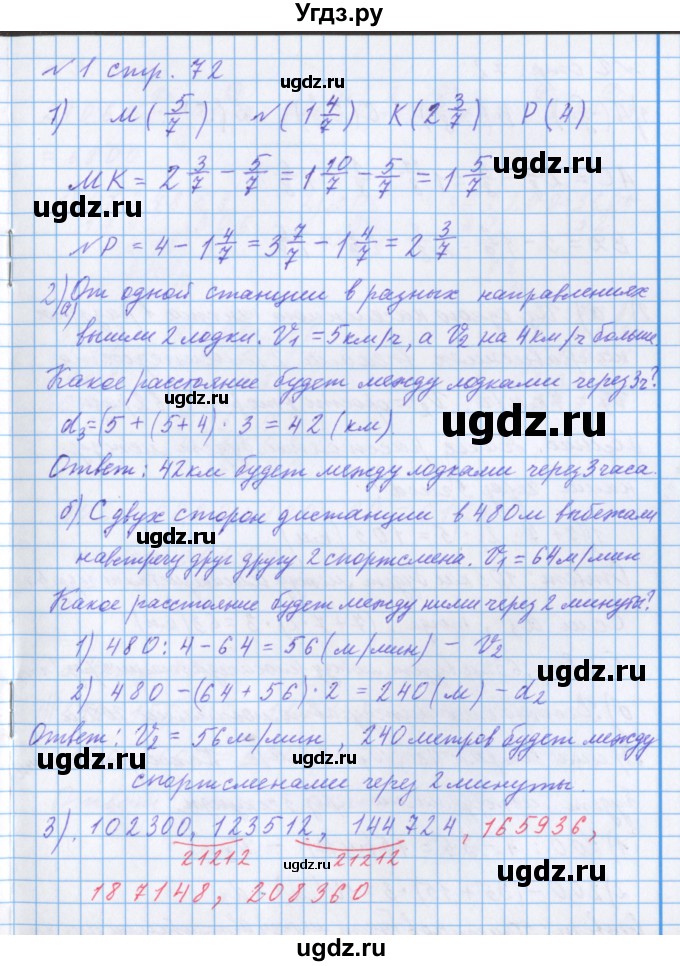 Угдз.ру
№1 стр. 72
ugdz.ru
1) M(5/7) N(1 4/7) K(2 3/7) P(4)
ugdz.ru
MK = 2 3/7 - 5/7 = 1 10/7 - 5/7 = 1 5/7
ugdz.ru
ugdz.ru
NP = 4 - 1 4/7 = 3 7/7 - 1 4/7 = 2 3/7
2) а) От одной станции в разных направлениях
вышли 2 лодки. V₁ = 5км/ч, а V₂ на 4км/ч больше
Какое расстояние будет между лодками через 3ч?
ugdz.ru
d₃=(5+(5+4)·3 = 42 (км).
ugdz.ru
Ответ: 42км будет между лодками через 3 часа.
б) С двух сторон дистанции в 480м выбежали
ugdz.ru
навстречу друг другу 2 спортсмена. V₁ = 64м/мин
Какое расстояние будет между ними через 2 минуты?
ugdz.ru
1) 480:4-64=56(м/мин) - V₂
ugdz.ru
2) 480-(64+56)·2 = 240(м) - d₂
ugdz.ru
Ответ: V₂ = 56м/мин, 240 метров будет между
ugdz.ru
ugdz.ru
спортсменами через 2 минуты.
3). 102300, 123512, 144724, 165936,
21212 21212
ugdz.ru
ugdz.ru
187148, 208360
ugdz.ru